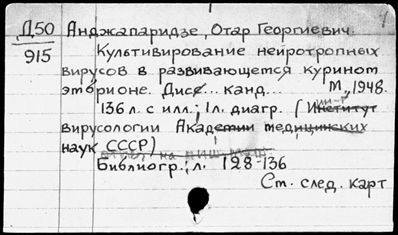 Д50 Анджапаридзе, Отар Георгиевич.
915 Культивирование нейротропных
вирусов в развивающемся курином
эмбрионе. Дисс... канд... М., 1948.
136 л. с илл.; 1л. диагр. (Институт
вирусологии Академии медицинских
наук СССР)
Библиогр.; л. 128-136
См. след. карт